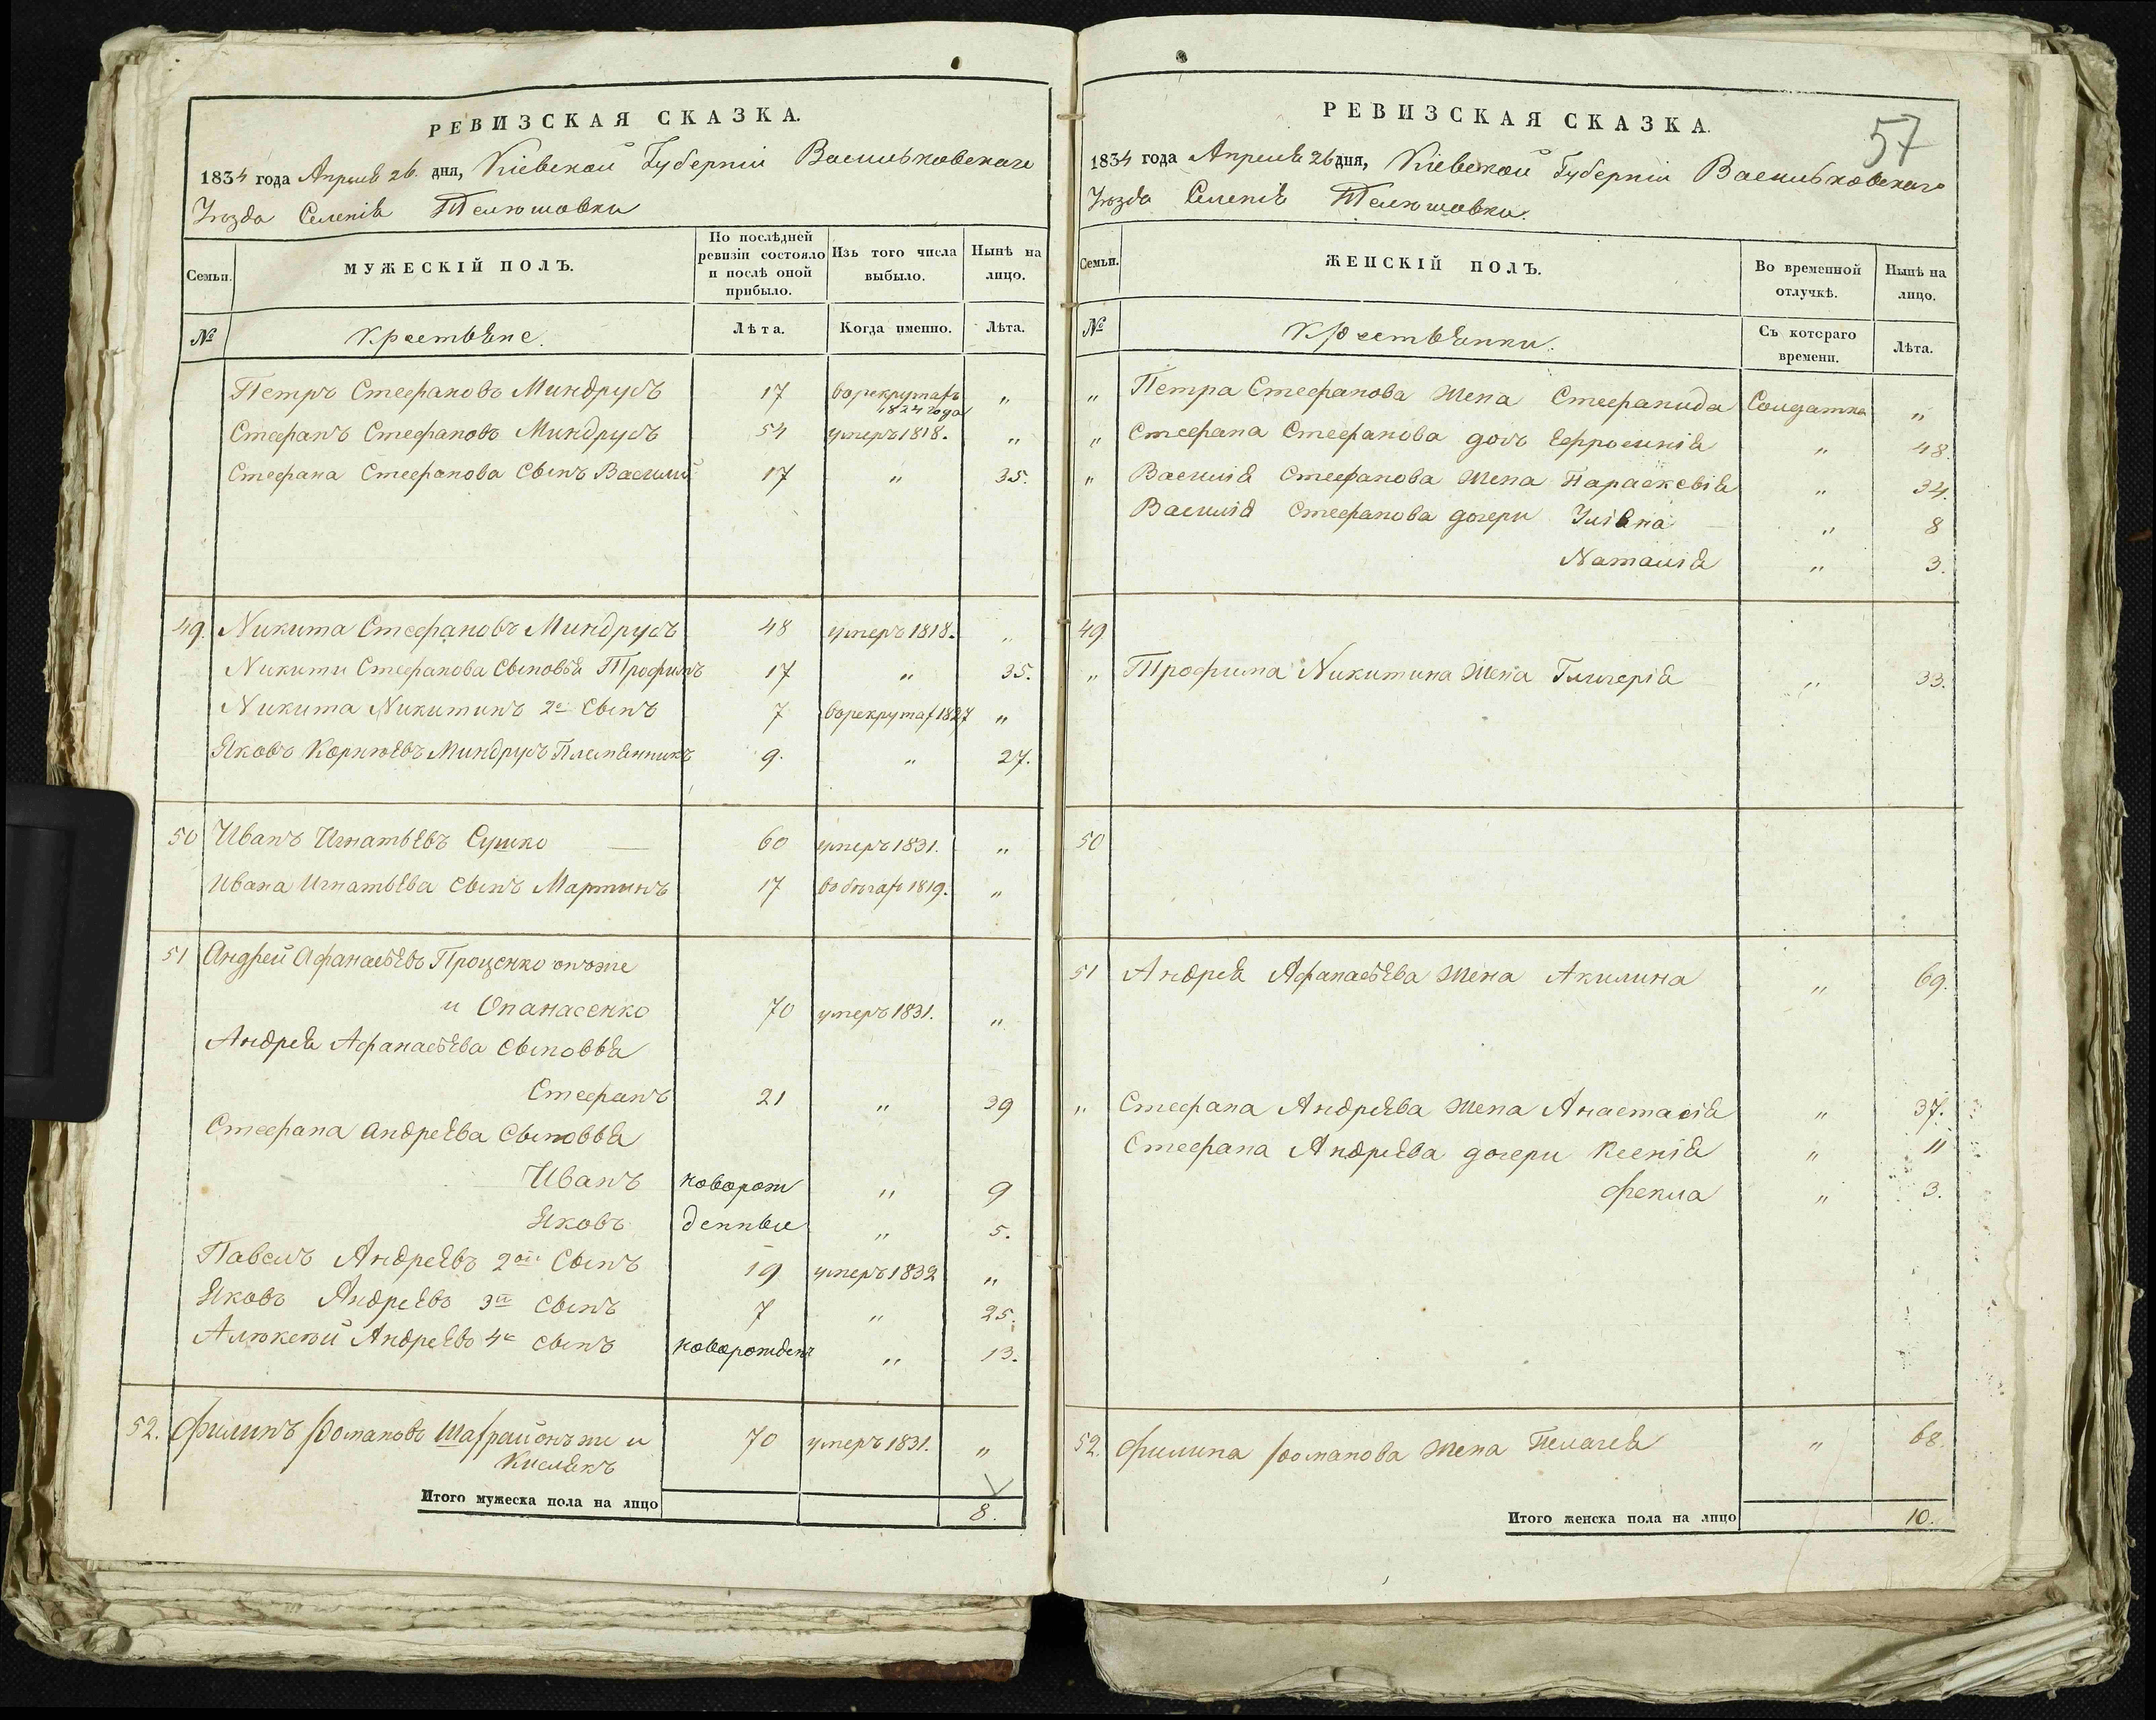 РЕВИЗСКАЯ СКАЗКА.
1834 года Апреля 26. дня, Кіевской Губерніи Васильковскаго
Уѣзда Селенія Телюшовки
Семьи.
МУЖЕСКІЙ ПОЛЪ.
По послѣдней ревизіи состояло и послѣ оной прибыло.
Изъ того числа выбыло.
Нынѣ на лицо.
№
Крестьяне.
Лѣта.
Когда именно.
Лѣта.
Петръ Стефановъ Миндрусъ 17 в рекрутах 1824 года "
Стефанъ Стефановъ Миндрусъ 54 умеръ 1818. "
Стефана Стефанова сынъ Василий 17 " 35.
49. Никита Стефановъ Миндрусъ 48 умеръ 1818. "
Никиты Стефанова сыновья Трофимъ 17 " 35.
Никита Никитинъ 2й сынъ 7 в рекрутах 1827 "
Яковъ Корнѣевъ Миндрусъ Племянникъ 9. " 27.
50 Иванъ Игнатьевъ Сушко 60 умеръ 1831. "
Ивана Игнатьева сынъ Мартинъ 17 в бѣгах 1819. "
51 Андрей Афанасьевъ Проценко онъже
и Опанасенко 70 умеръ 1831. "
Андрея Афанасьева сыновья
Стефанъ 21 " 39
Стефана Андреева сыновья
Иванъ новорож " 9
Яковъ денные " 5.
Павелъ Андреевъ 2ой сынъ 19 умеръ 1832 "
Яковъ Андреевъ 3й сынъ 7 " 25.
Алексѣй Андреевъ 4й сынъ новорожден " 13.
52. Филипъ Романовъ онъже и 70 умеръ 1831. "
Кислякъ
Итого мужеска пола на лицо 8.
РЕВИЗСКАЯ СКАЗКА.
57
1834 года Апреля 26 дня, Кіевской Губерніи Васильковскаго
Уѣзда Селенія Телюшовки.
Семьи.
ЖЕНСКІЙ ПОЛЪ.
Во временной отлучкѣ.
Нынѣ на лицо.
№
Крестьянки.
Съ котораго времени.
Лѣта.
" Петра Стефанова жена Стефанида Солдатка "
" Стефана Стефанова дочь Ефросинія " 48.
" Василія Стефанова жена Параскевія " 34.
Василія Стефанова дочери Уліяна " 8
Наталія " 3.
49
" Трофима Никитина жена Гликерія " 33.
50
51 Андрея Афанасьева жена Акилина " 69.
" Стефана Андреева жена Анастасія " 37.
Стефана Андреева дочери Ксенія " 11
Фекла " 3.
52. Филипа Романова жена Пелагея " 68.
Итого женска пола на лицо 10.